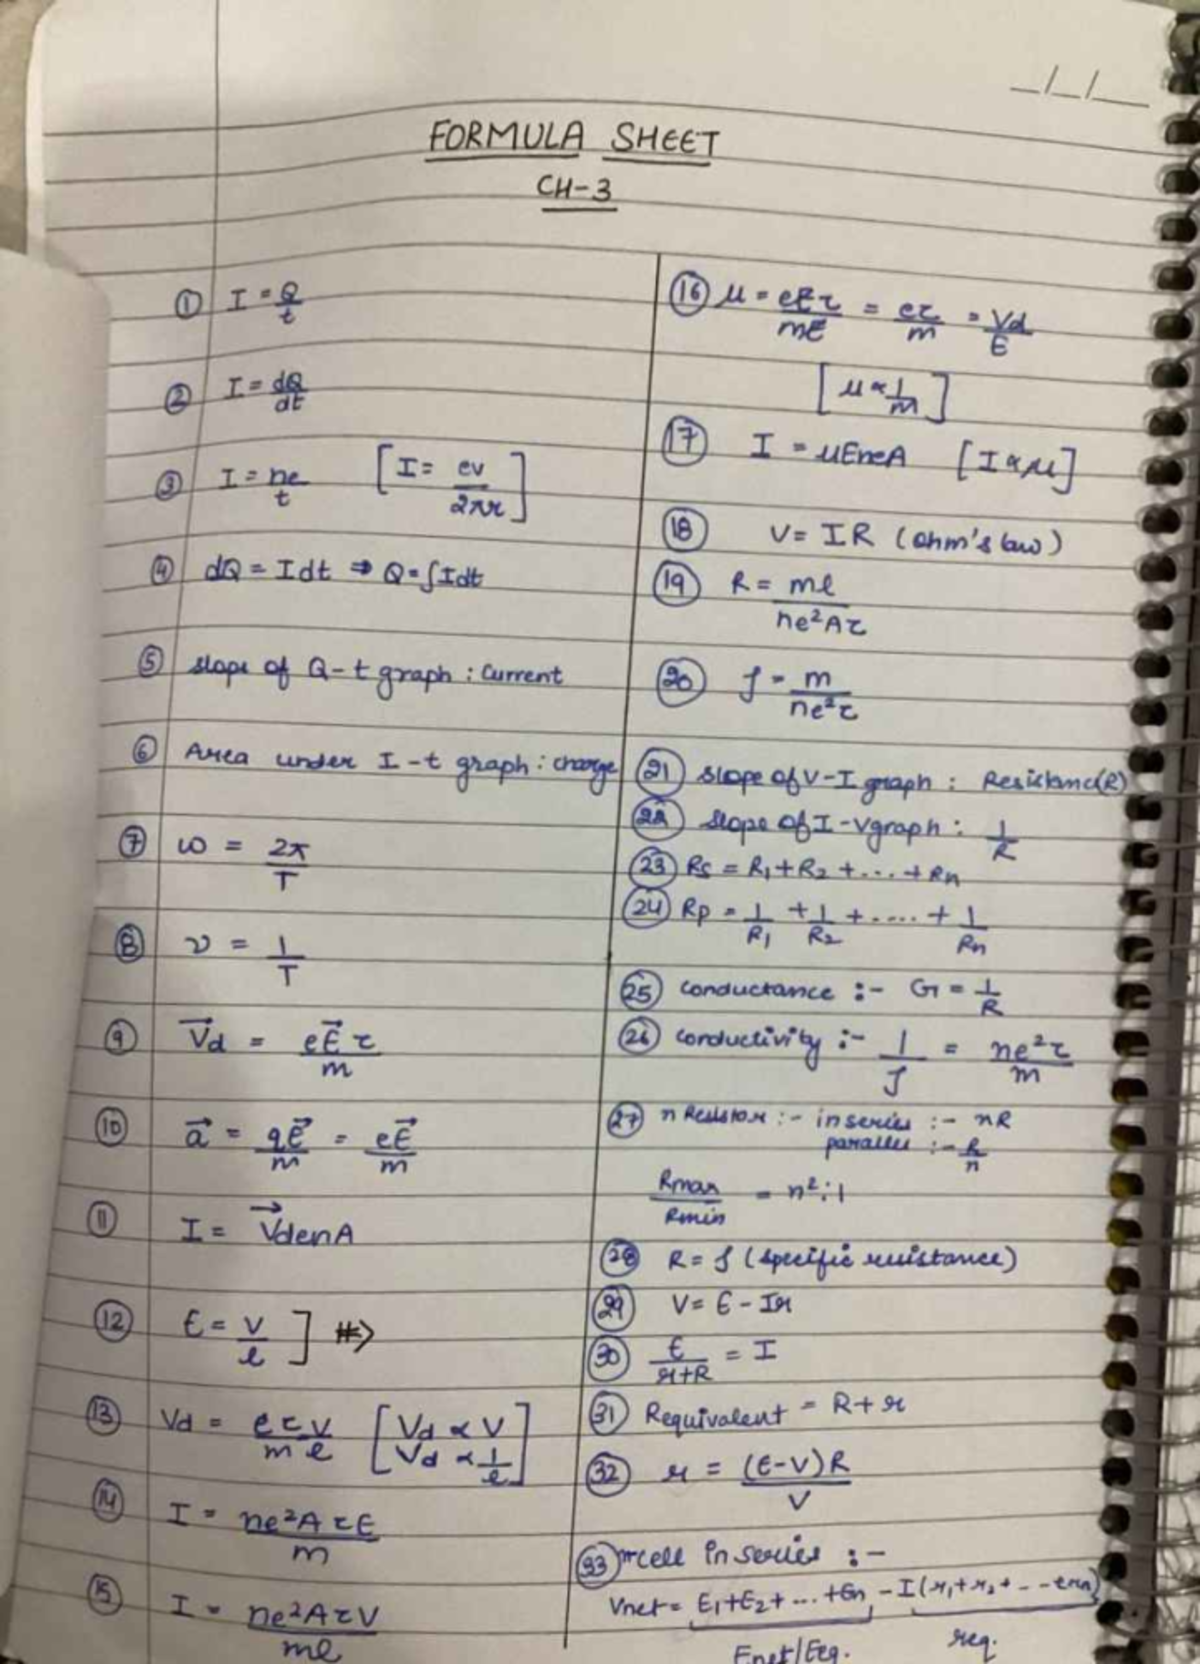 FORMULA SHEET
CH-3
① I = Q/t
② I = dQ/dt
③ I = ne/t [I = ev/2πr]
④ dQ = Idt ⇒ Q = ∫Idt
⑤ slope of Q-t graph : current
⑥ Area under I-t graph : charge
⑦ ω = 2π/T
⑧ ν = 1/T
⑨ V⃗d = eE⃗τ/m
⑩ a⃗ = qE⃗/m = eE⃗/m
⑪ I = V⃗denA
⑫ E = V/l ] #⇒
⑬ Vd = eτV/ml [Vd ∝ V
Vd ∝ 1/l]
⑭ I = ne²AτE/m
⑮ I = ne²AτV/ml
⑯ μ = eEτ/mE = eτ/m = Vd/E
[μ ∝ 1/m]
⑰ I = μEneA [I ∝ μ]
⑱ V = IR (Ohm's law)
⑲ R = ml/ne²Aτ
⑳ ρ = m/ne²τ
㉑ slope of V-I graph : Resistanc(R)
㉒ slope of I-V graph : 1/R
㉓ Rs = R₁+R₂+...+Rn
㉔ Rp = 1/R₁ + 1/R₂ + .... + 1/Rn
㉕ conductance :- G = 1/R
㉖ conductivity :- 1/ρ = ne²τ/m
㉗ n Resistor :- in series :- nR
parallel :- R/n
Rmax/Rmin = n²:1
㉘ R = ρ (specific resistance)
㉙ V = E - Ir
㉚ E/r+R = I
㉛ Requivalent = R+r
㉜ r = (E-V)R/V
㉝ cell in series :-
Vnet = E₁+E₂+...+En - I(r₁+r₂+
Enet/Eeq. req.